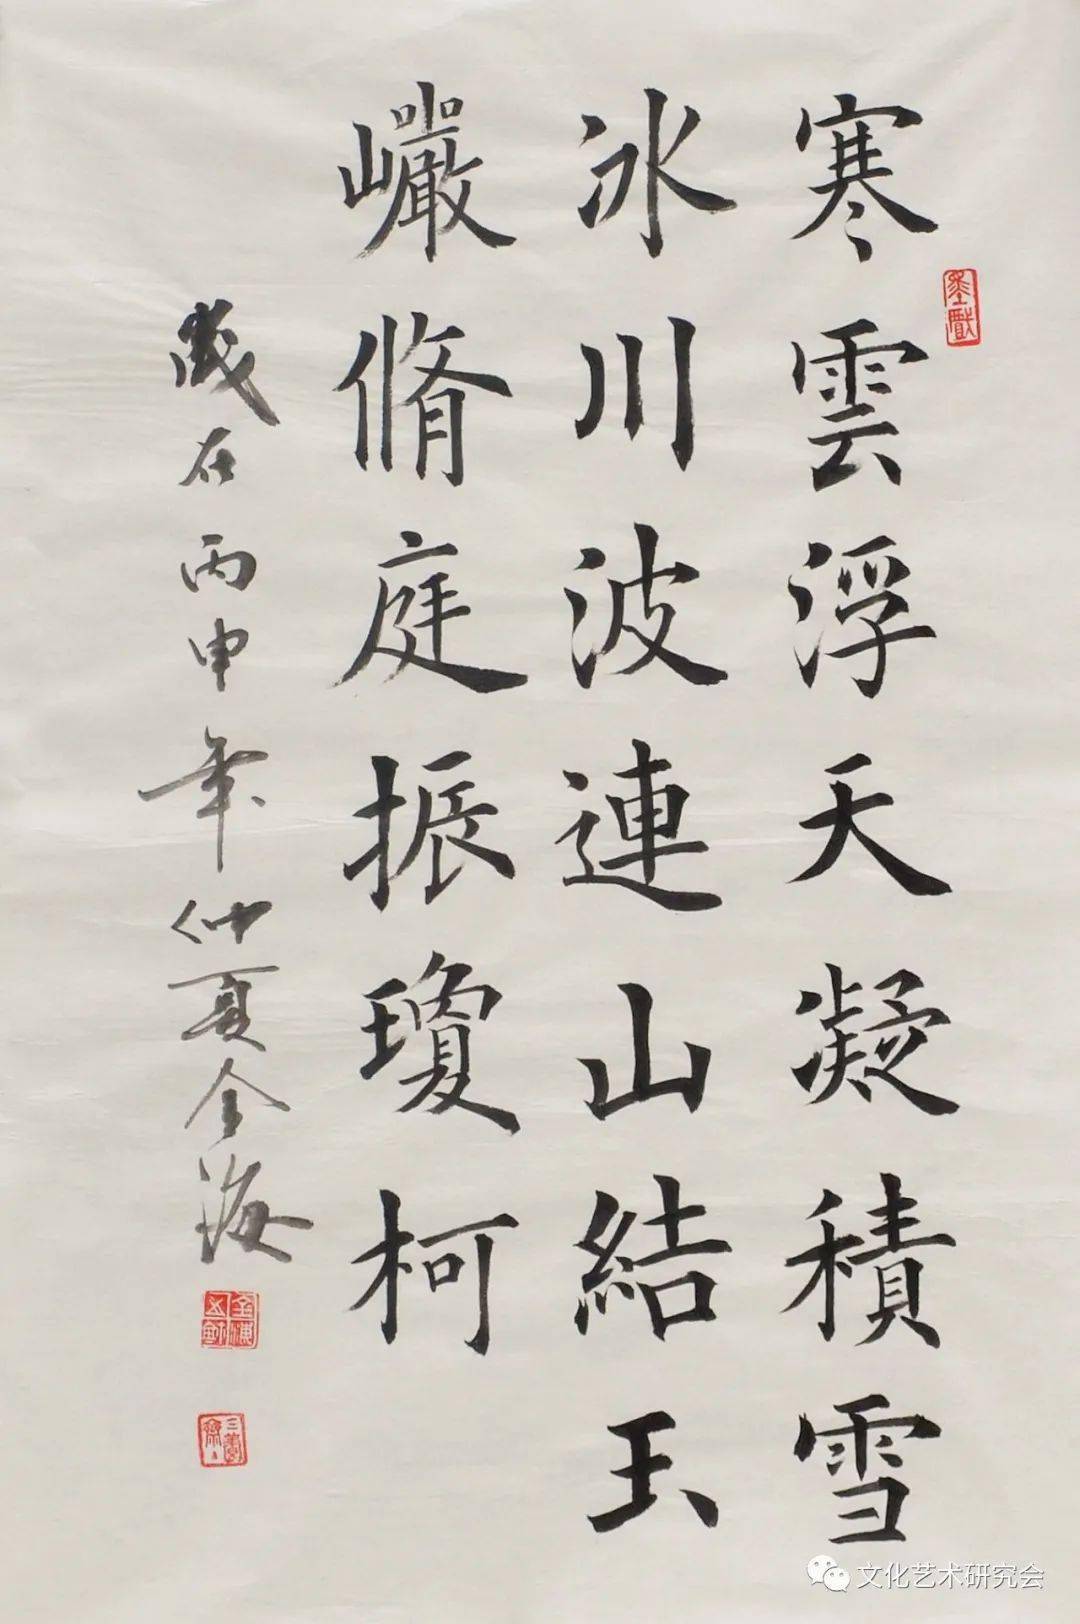 寒雲浮天凝積雪
冰川波連山結玉
巗脩庭振瓊柯
歲在丙申年仲夏全海
文化艺术研究会